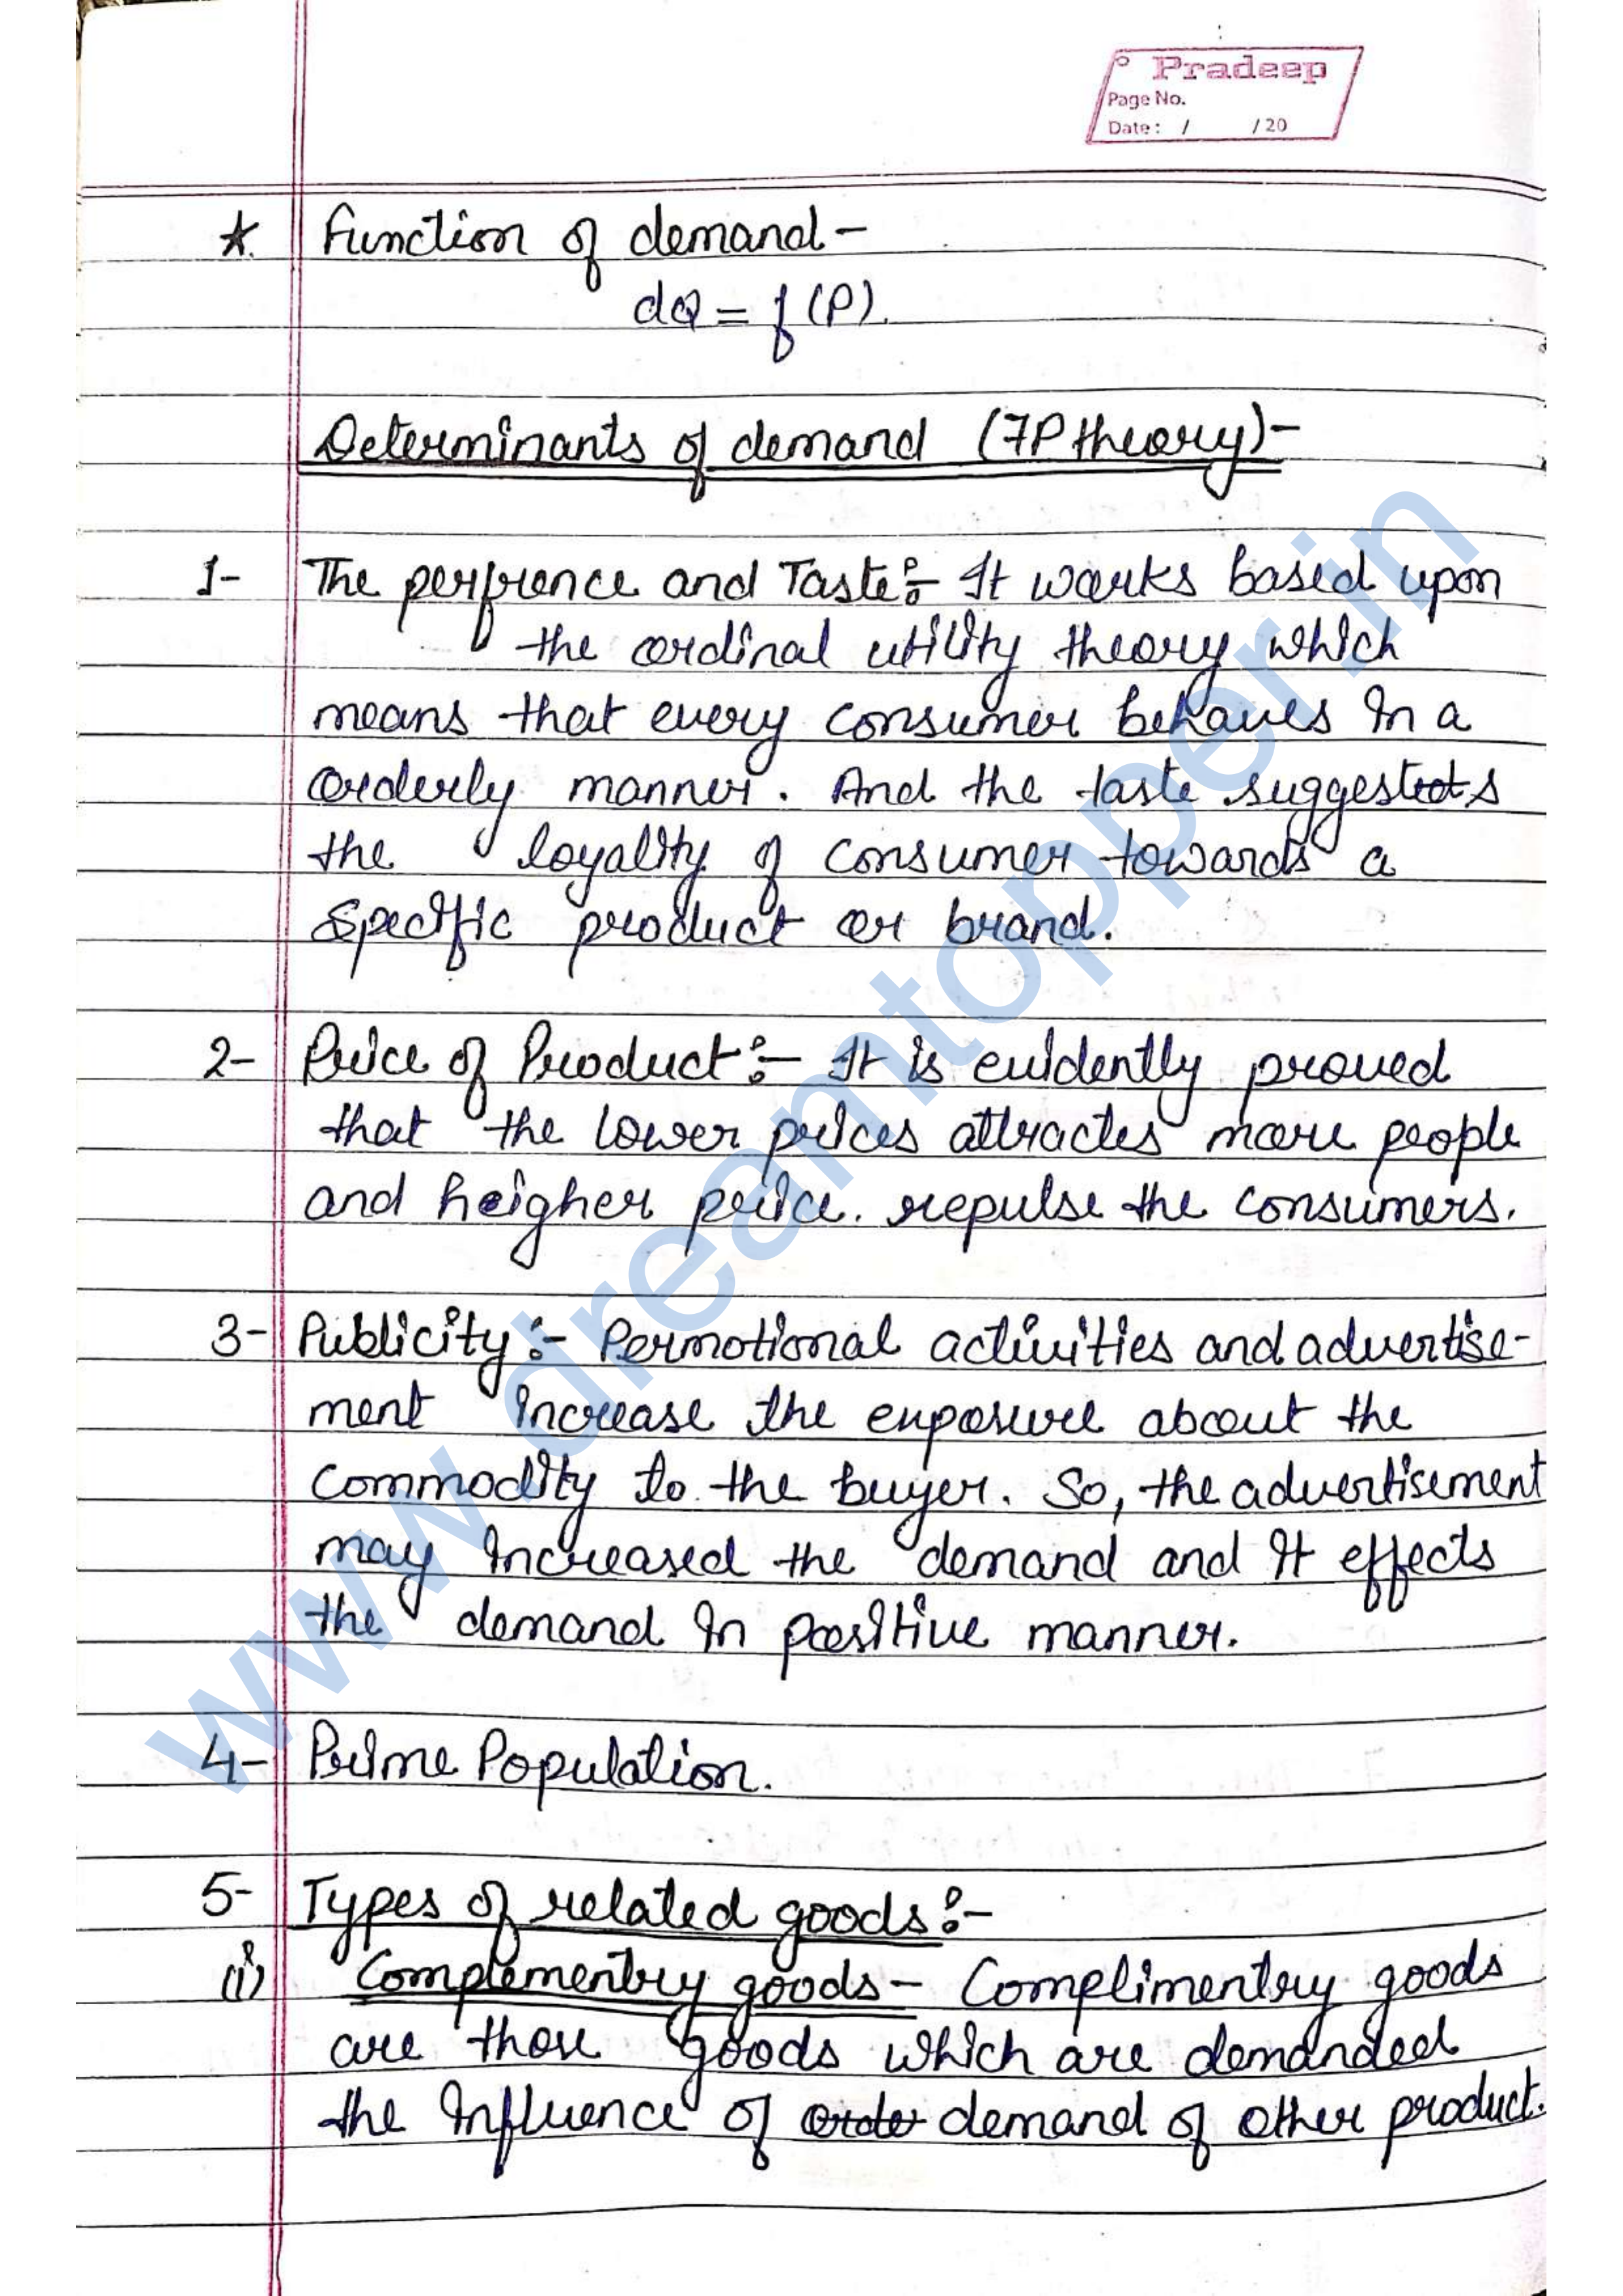 Pradeep
Page No.
Date: / /20
★. Function of demand-
dQ = f (P).
Determinants of demand (7P theory)-
1- The perfrence and Taste:- It works based upon
the ordinal utility theory which
means that every consumer behaves in a
orderly manner. And the taste suggests
the loyality of consumer towards a
specific product or brand.
2- Price of Product:- It is evidently proved
that the lower prices attractes more people
and heigher price. repulse the consumers.
3- Publicity:- Permotional activities and advertise-
ment increase the exposure about the
commodity to the buyer. So, the advertisement
may increased the demand and it effects
the demand in positive manner.
4- Prime Population.
5- Types of related goods:-
(i) Complementry goods- Complimentry goods
are those goods which are demanded
the influence of order demand of other product.
www.dreamtopper.in